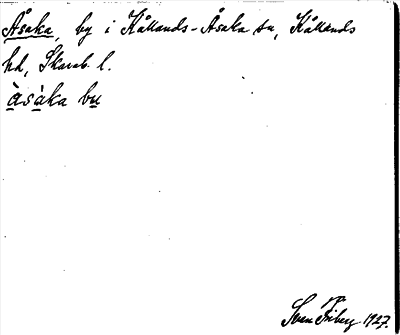 Åsaka, by i Kållands-Åsaka sn, Kållands
hd, Skarab. l.
àsàka bu
Sven Friberg 1927.